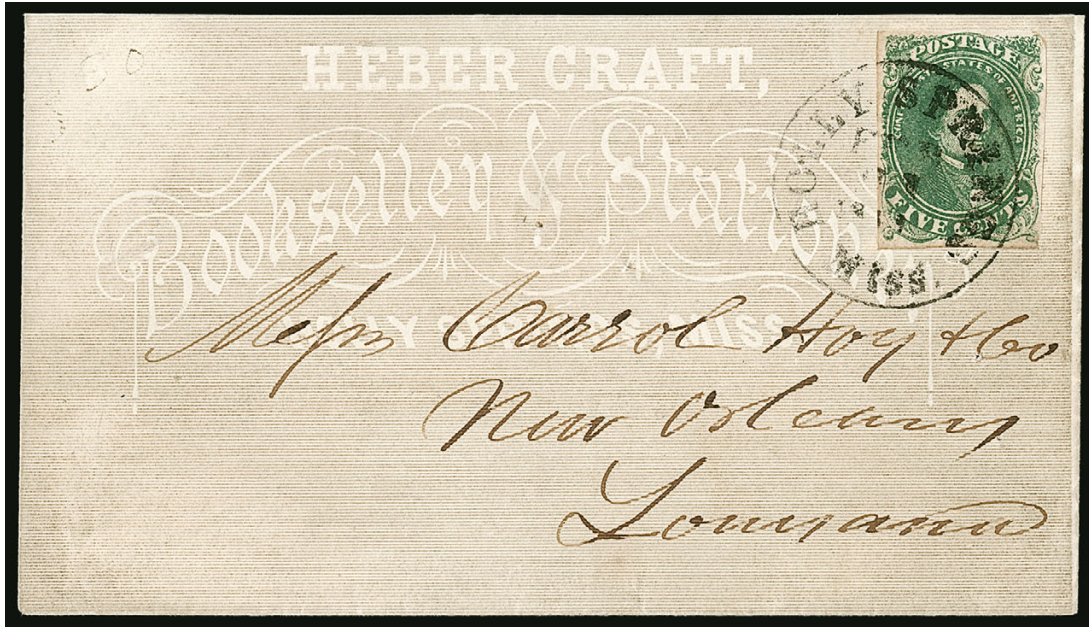 30
HEBER CRAFT,
Bookseller & Stationer,
HOLLY SPRINGS, MISS.
POSTAGE
CONFEDERATE STATES OF AMERICA
FIVE CENTS
HOLLY SPRINGS
Miss.
Messrs Carrol Hoy & Co
New Orleans
Louisiana